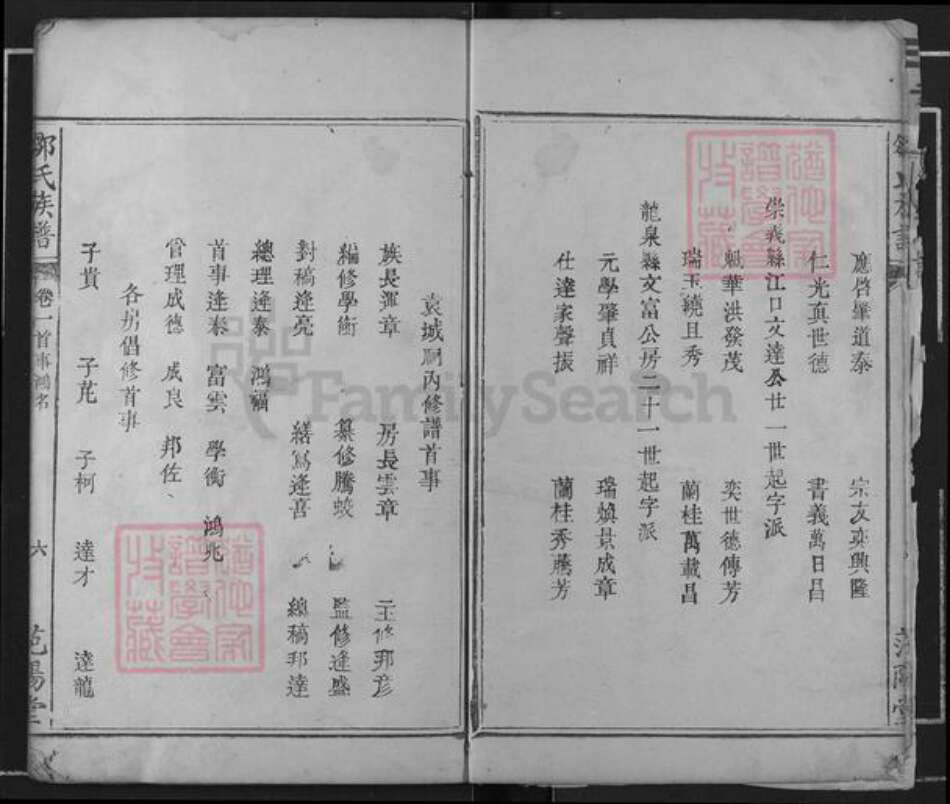 應啓肇道泰 宗友奕興隆
仁光真世德 書義萬日昌
崇義縣江口文達公廿一世起字派
華洪發茂 奕世德傳芳
瑞玉繞且秀 蘭桂萬載昌
龍泉縣文富公房二十一世起字派
元學肇貞祥 瑞煥景成章
仕達家聲振 蘭桂秀騰芳
袁城 內修譜首事
族長渾章 房長雲章 主修邦彥
編修學衡 纂修騰蛟 監修逢盛
對稿逢亮 繕寫逢喜 總稿邦達
總理逢泰 鴻福
首事逢泰 富雲 學衡 鴻兆
管理成德 成良 邦佐
各房倡修首事
子貴 子芘 子柯 達才 達龍
鄒氏族譜 卷一首事鴻名 六 范陽堂
FamilySearch